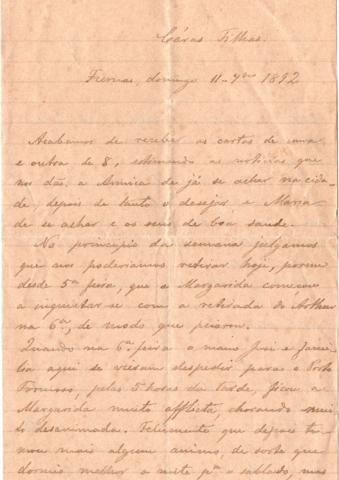 Cáras Filhas.
Furnas, domingo 11-7bro 1892
Acabamos de receber as cartas de uma
e outra de 8, estimando as noticias que
nos dão, a Amira de já se achar na cida-
de, depois de tanto o desejar e Maria
de se achar e os seus de boa saude.
No principio da semana julgamos
que nos poderiamos retirar hoje, porem
desde 5ª feira, que a Margarida começou
a inquietar-se com a retirada do Arthur
na 6ª, de modo que peiorou.
Quando na 6ª feira o mano José e
aqui se vieram despedir para o Porto
Formoso, pelas 5 horas da tarde, ficou a
Margarida muito afflicta, chorando mui-
to desanimada. Felizmente que depois to-
mou mais algum animo, de sorte que
dormio melhor a noite pª o sabbado, mas